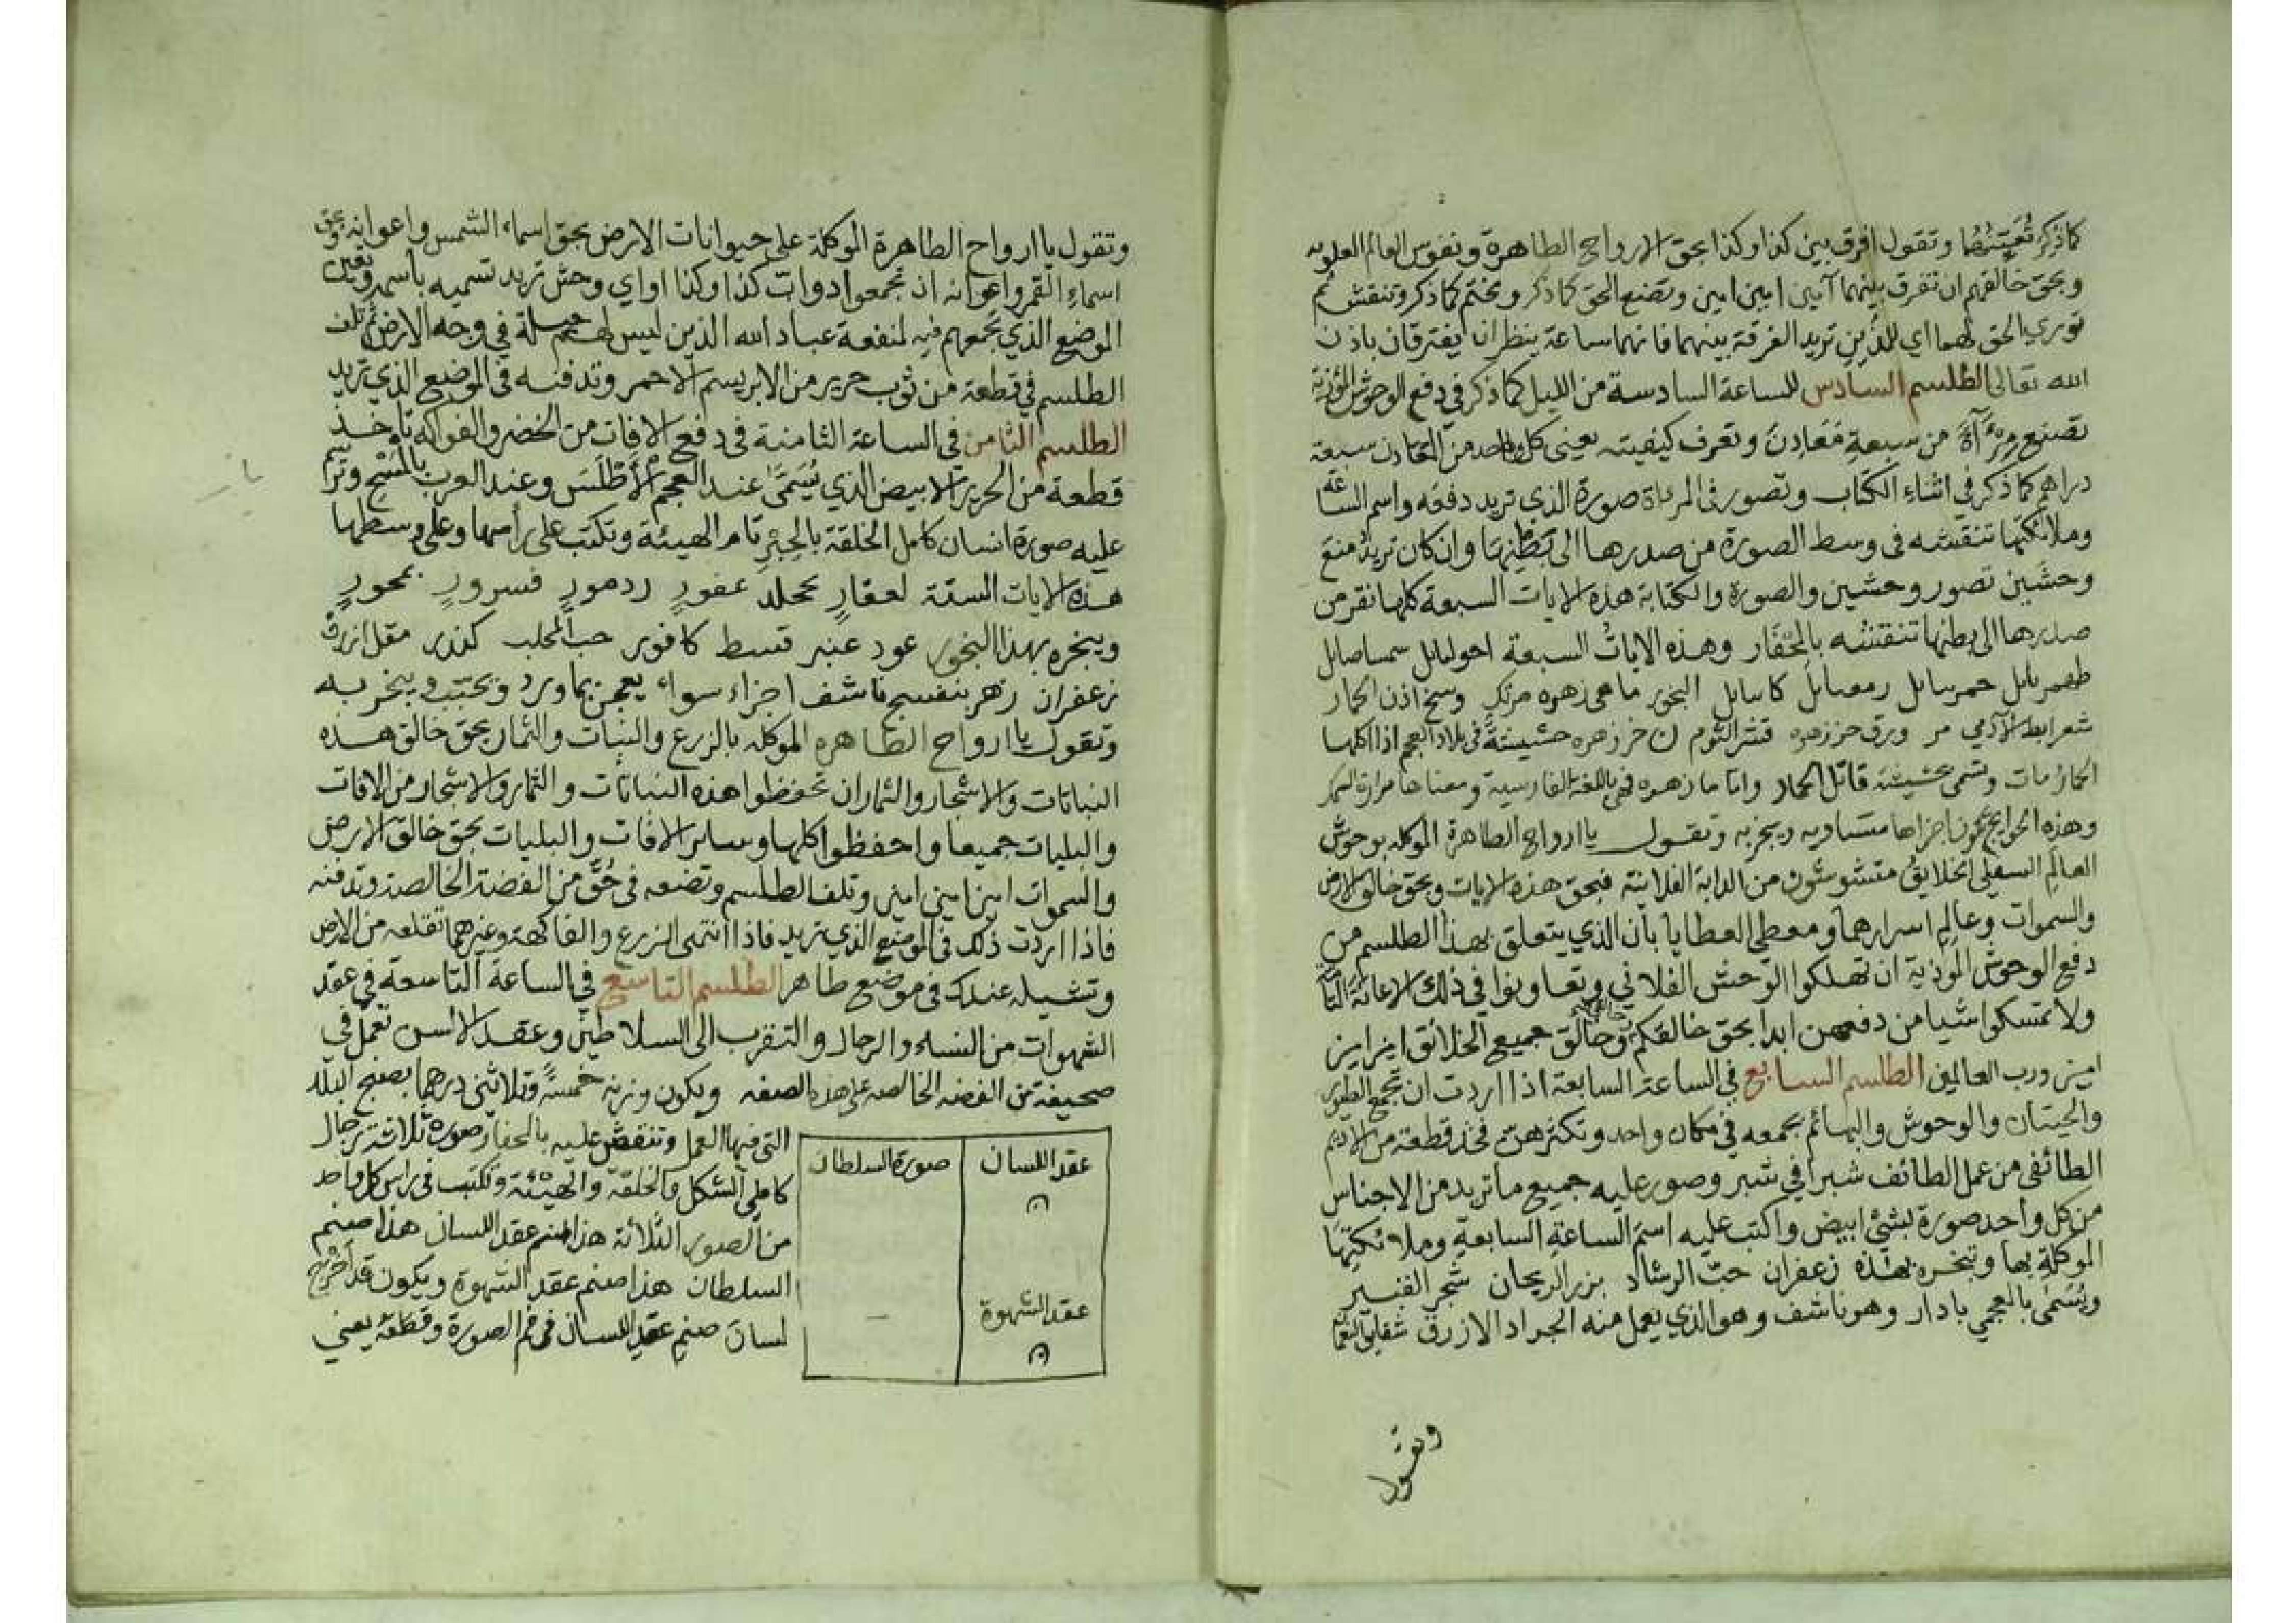 كما ذكر تعيتنهما وتقول افرق بين كذا وكذا بحق الارواح الطاهرة ونفوس العالم العلويه
وبحق خالقهم ان تفرق بينهما آمين امين امين وتصنع الحق كما ذكر ويختم كما ذكر وتنقش ثم
توري الحق لهما اي للذين تريد الفرقة بينهما فانهما ساعة ينظران يفترقان باذن
الله تعالى الطلسم السادس للساعة السادسة من الليل كما ذكر في دفع الوحوش المؤذية
تصنع مرءآة من سبعة معادن وتعرف كيفيته يعني كل واحد من المعادن سبعة
دراهم كما ذكر في اثناء الكتاب وتصور في المرءاة صورة الذي تريد دفعه واسم الساعة
وملائكتها تنقشه في وسط الصورة من صدرها الى بطنها وان كان تريد منع
وحشين تصور وحشين والصورة والكتابة هذه الايات السبعة كلها نقر من
صدرها الى بطنها تنقشه بالحفار وهذه الايات السبعة
البخور ماهي زهره وسخ اذن الحمار
شعر ابط الآدمي مر وورق خرزهره قشر الثوم لان خرزهره حشيشة في بلاد العجم اذا اكلها
الحمار مات وتسمى حشيشة قاتل الحمار واما ماهي زهره فهي باللغة الفارسية ومعناها مرارة السمك
وهذه الحوايج تكون اجزاها متساويه ويبخر به وتقول ياارواح الطاهرة الموكله بوحوش
العالم السفلي الخلايق متشوشون من الدابة الفلانية فبحق هذه الايات وبحق خالق الارض
والسموات وعالم اسرارهما ومعطي العطايا بأن الذي يتعلق بهذا الطلسم من
دفع الوحوش المؤذية ان تهلكوا الوحش الفلاني وتعاونوا في ذلك الاعانة التامة
ولا تمسكوا شيا من دفعهن ابدا بحق خالقكم وخالق جميع الخلائق امين امين
امين ورب العالمين الطلسم السابع في الساعة السابعة اذا اردت ان تجمع الطيور
والحيتان والوحوش والبهائم بجمعه في مكان واحد وتكثرهن فخذ قطعة من الاديم
الطائفي من عمل الطائف شبرا في شبر وصور عليه جميع ما تريد من الاجناس
من كل واحد صورة بشيء ابيض واكتب عليه اسم الساعة السابعة وملائكتها
الموكلة بها وتبخره بهذه زعفران حب الرشاد بزر الريحان شجر
ويسمى بالعجمي بادار وهو ناشف وهو الذي يعمل منه الجراد الازرق
وتقول
وتقول ياارواح الطاهرة الموكلة على حيوانات الارض بحق اسماء الشمس واعوانه وبحق
اسماء القمر واعوانه ان تجمعوا دوات كذا وكذا او اي وحش تريد تسميه باسمه وتعين
الموضع الذي تجمعهم فيه لمنفعة عباد الله الذين ليس لهم حيلة في وجه الارض ثم تلف
الطلسم في قطعة من ثوب حرير من الابريسم الاحمر وتدفنه في الموضع الذي تريد
الطلسم الثامن في الساعة الثامنة في دفع الافات من الخضر والفواكه تاخذ
قطعة من الحرير الابيض الذي يسمى عند العجم الاطلس وعند العرب وترسم
عليه صورة انسان كامل الخلقة بالحبر تام الهيئة وتكتب على رأسها وعلى وسطها
هذه الايات الستة لعقار محلد عفور ردمور فسرور بمحور
ويبخره بهذا البخور عود عنبر قسط كافور حب المحلب كندر مقل ازرق
زعفران زهر بنفسج ناشف اجزاء سواء يعجن بماورد ويحبب ويبخر به
وتقول ياارواح الطاهره الموكله بالزرع والنبات والثمار بحق خالق هذه
النباتات والاشجار والثمار ان تحفظوا هذه النباتات والثمار والاشجار من الافات
والبليات جميعا واحفظوا كلها وساير الافات والبليات بحق خالق الارض
والسموات امين امين امين وتلف الطلسم وتضعه في حق من الفضة الخالصة وتدفنه
فاذا اردت ذلك في الموضع الذي تريد فاذا انتهى الزرع والفاكهة وغيرهما تقلعه من الارض
وتشيله عندك في موضع طاهر الطلسم التاسع في الساعة التاسعة في عقد
الشهوات من النساء والرجال والتقرب الى السلاطين وعقد الالسن تعمل في
صحيفة من الفضه الخالصه على هذه الصفه ويكون وزنه خمسة وثلاثين درهما بصنج البلد
التي فيها العمل وتنقش عليه بالحفار صورة ثلاثة رجال
كاملي الشكل والخلقة والهيئة وتكتب في راس كل واحد
من الصور الثلاثة هذا صنم عقد اللسان هذا صنم
السلطان هذا صنم عقد الشهوة ويكون قد اخرج
لسان صنم عقد اللسان في فم الصورة وقطعه يعني
عقد اللسان
صورة السلطان
عقد الشهوة